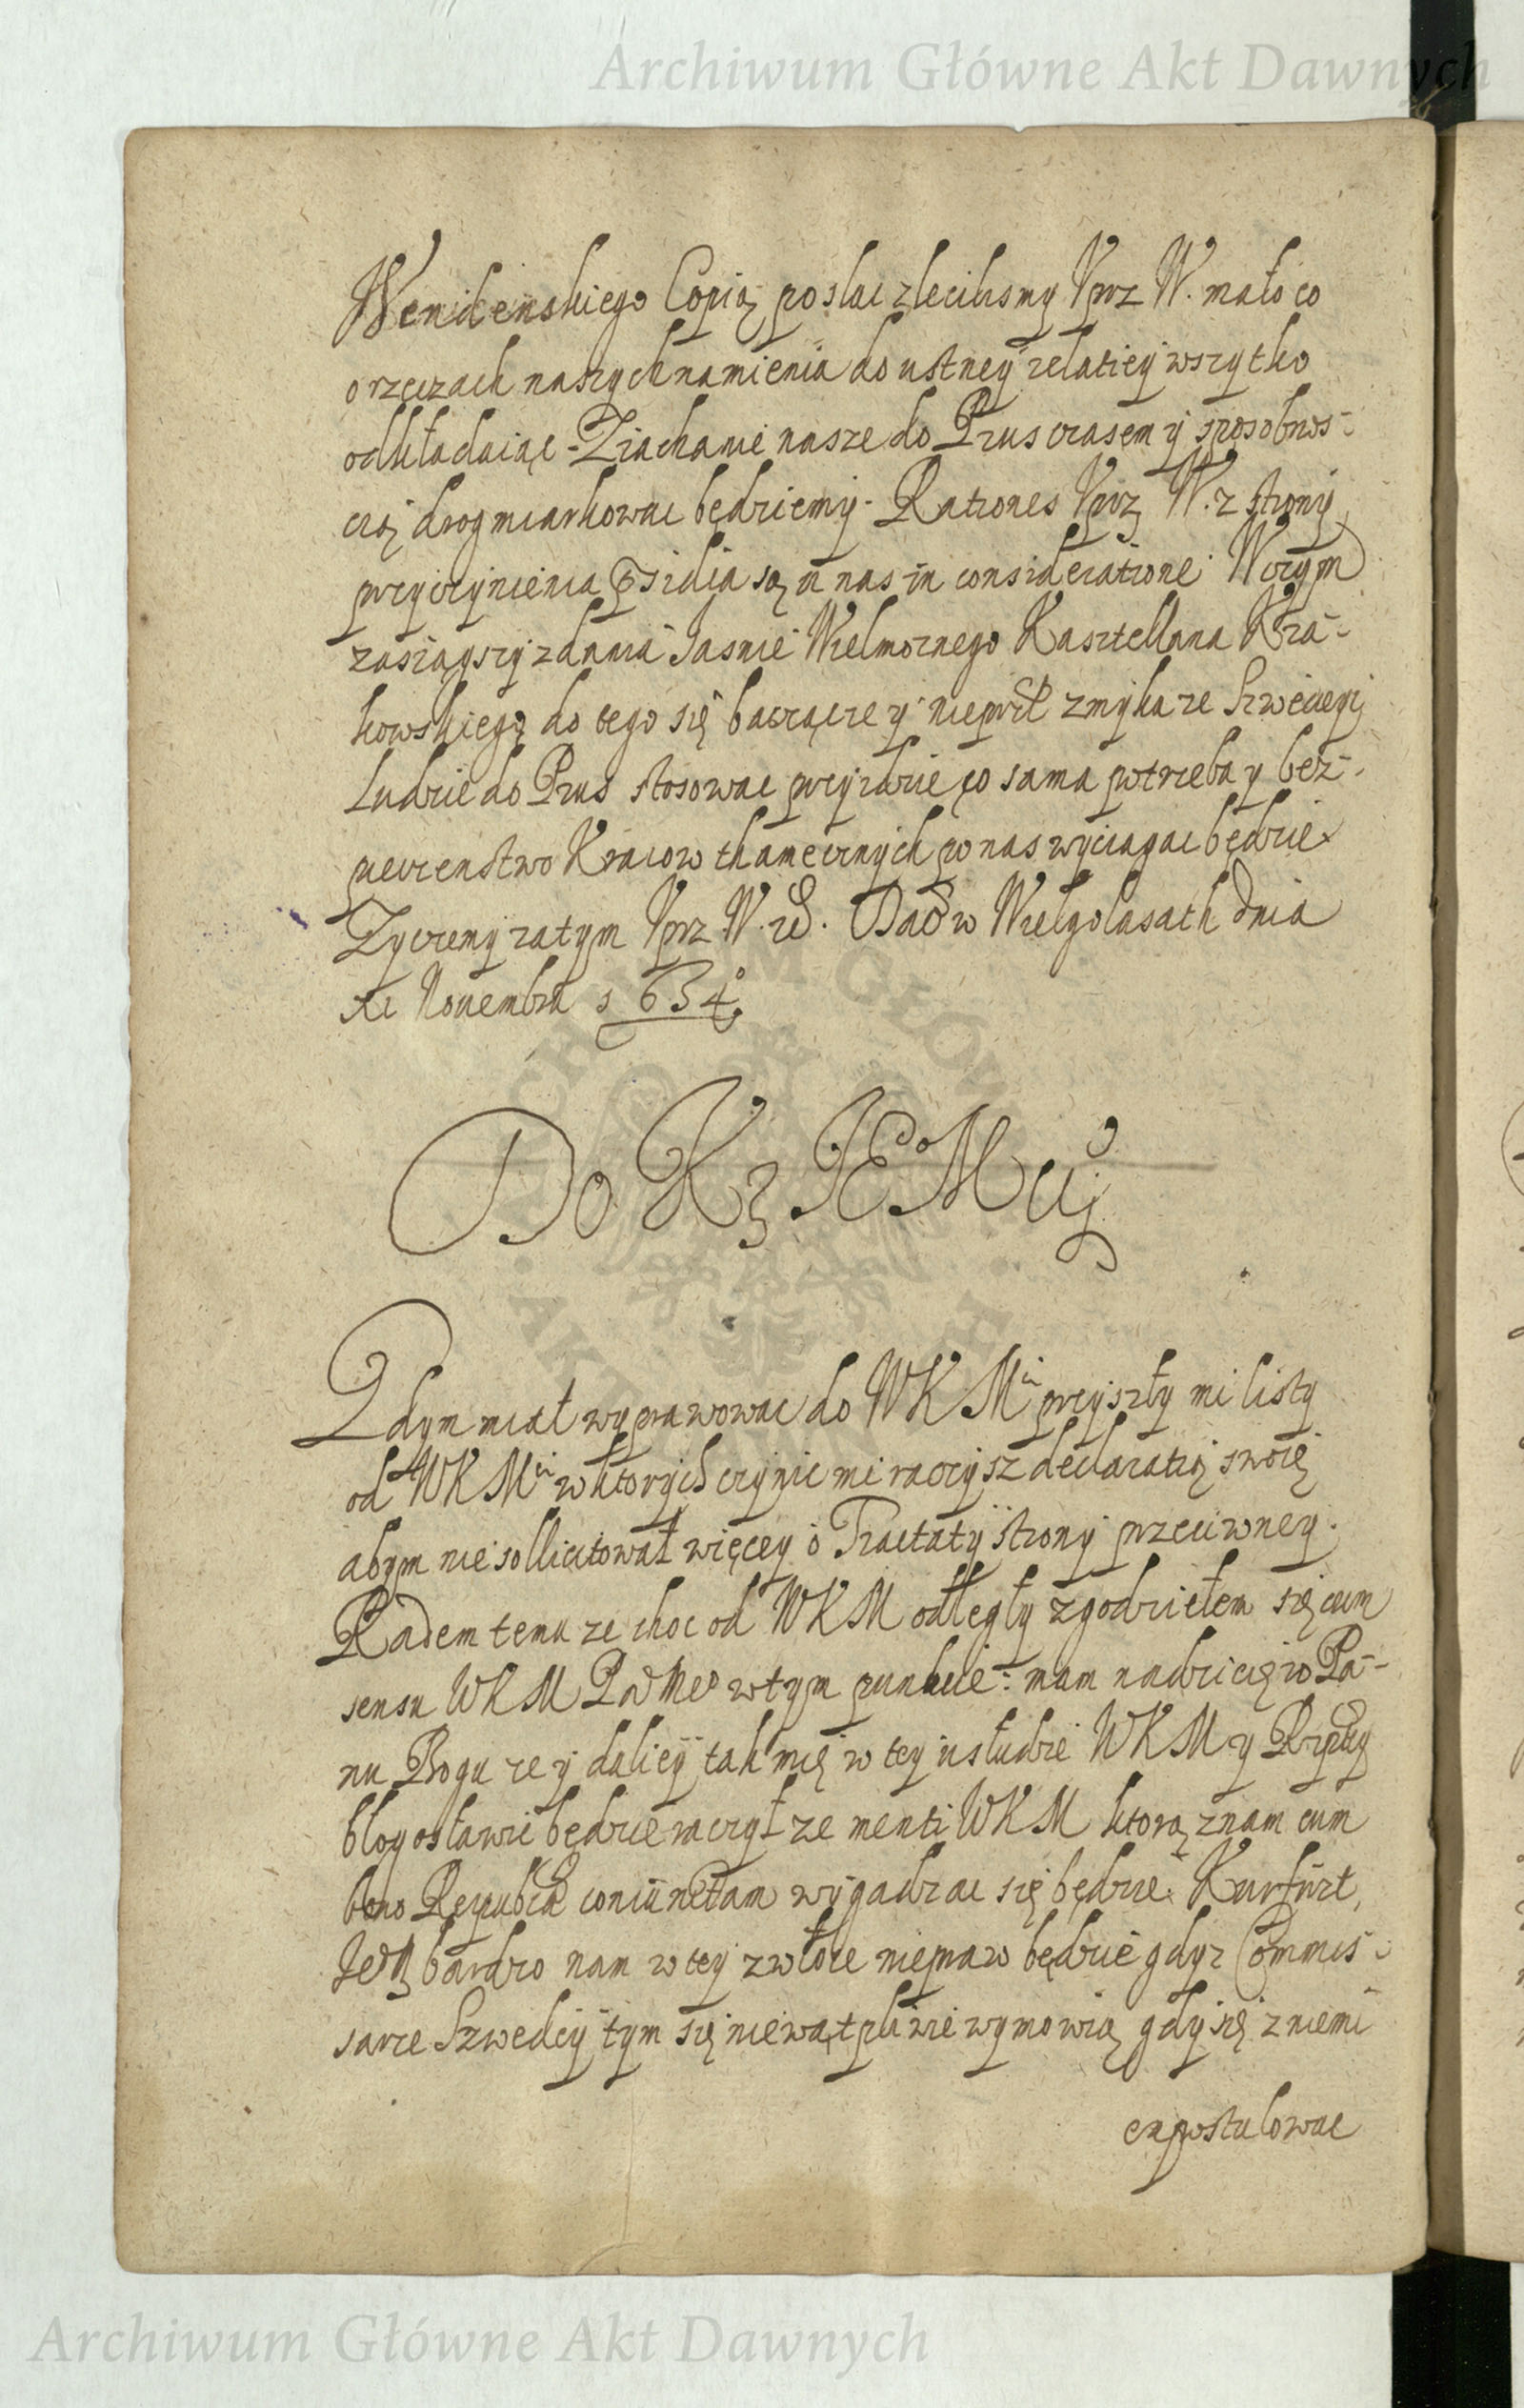 Archiwum Główne Akt Dawnych
Wendenskiego Copią posłac zlecilismy Uprz W. mało co
o rzeczach naszych namienia do ustney relatiey wszytko
odkładaiąc. Ziachanie nasze do Prus czasem y sposobnos-
cią drog miarkowac będziemy. Rationes Uprz W. z strony
przyczynienia są u nas in consideratione. W czym
zasiągszy zdania Jasnie Wielmoznego Kasztellana Kra-
kowskiego do tego się bacząc ze y niepŕl zmyka ze Szweciey
ludzie do Prus stosowac przyidzie co sama potrzeba y bez-
pieczenstwo Kraiow thamecznych po nas wyciągac będzie.
Zyczemy zatym Uprz W. zd. Dat w Wielgolasach dnia
XI Nouembra 1634.
Do K J E Mci
Gdym miał wyprawowac do WKMci przyszły mi listy
od WKMci w ktorych czynic mi raczysz declaratią swoię
abym nie sollicitował więcey o Tractaty strony przeciwney.
Radem temu ze choc od WKM odległy zgodziełem się cum
sensu WKM P M w tym punkcie: mam nadzieię w Pa-
nu Bogu ze y daliey tak mię w tey usłudze WKM y Rzptey
błogosławic będzie raczył ze menti WKM ktorą znam cum
bono Reipublicae coniunctam wygadzac się będzie. Kurfirt
bardzo nam w tey zwłoce niepraw będzie gdyz Commis-
sarze Szwedcy tym się niewątpliwie wymowią gdy się z niemi
expostulowac
Archiwum Główne Akt Dawnych